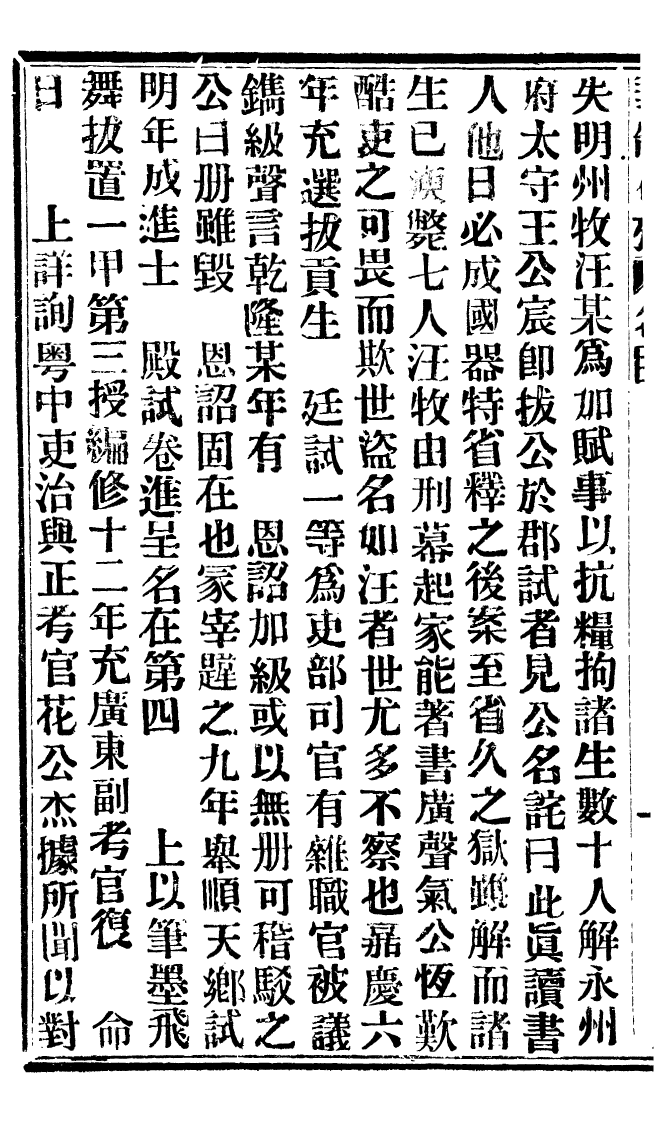 失明州牧汪某爲加賦事以抗糧拘諸生數十人解永州
府太守王公宸卽拔公於郡試者見公名詫曰此眞讀書
人他日必成國器特省釋之後案至省久之獄雖解而諸
生已瘐斃七人汪牧由刑幕起家能著書廣聲氣公恆歎
酷吏之可畏而欺世盜名如汪者世尤多不察也嘉慶六
年充選拔貢生 廷試一等爲吏部司官有雜職官被議
鐫級聲言乾隆某年有 恩詔加級或以無册可稽駁之
公曰册雖毀 恩詔固在也冢宰韙之九年舉順天鄉試
明年成進士 殿試卷進呈名在第四 上以筆墨飛
舞拔置一甲第三授編修十二年充廣東副考官復 命
日 上詳詢粤中吏治與正考官花公杰據所聞以對